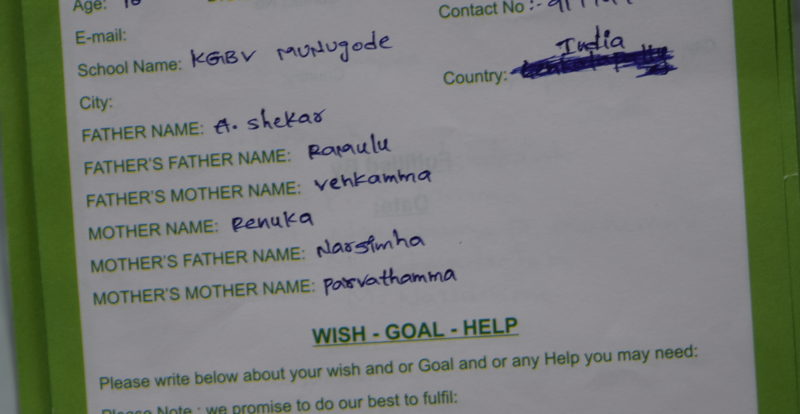 Age:
Contact No :-
E-mail:
School Name: KGBV MUNUgode
India
Country:
City:
FATHER NAME: A. Shekar
FATHER'S FATHER NAME: Ramulu
FATHER'S MOTHER NAME: venkamma
MOTHER NAME: Renuka
MOTHER'S FATHER NAME: Narsimha
MOTHER'S MOTHER NAME: parvathamma
WISH - GOAL - HELP
Please write below about your wish and or Goal and or any Help you may need:
Please Note : we promise to do our best to fulfil: